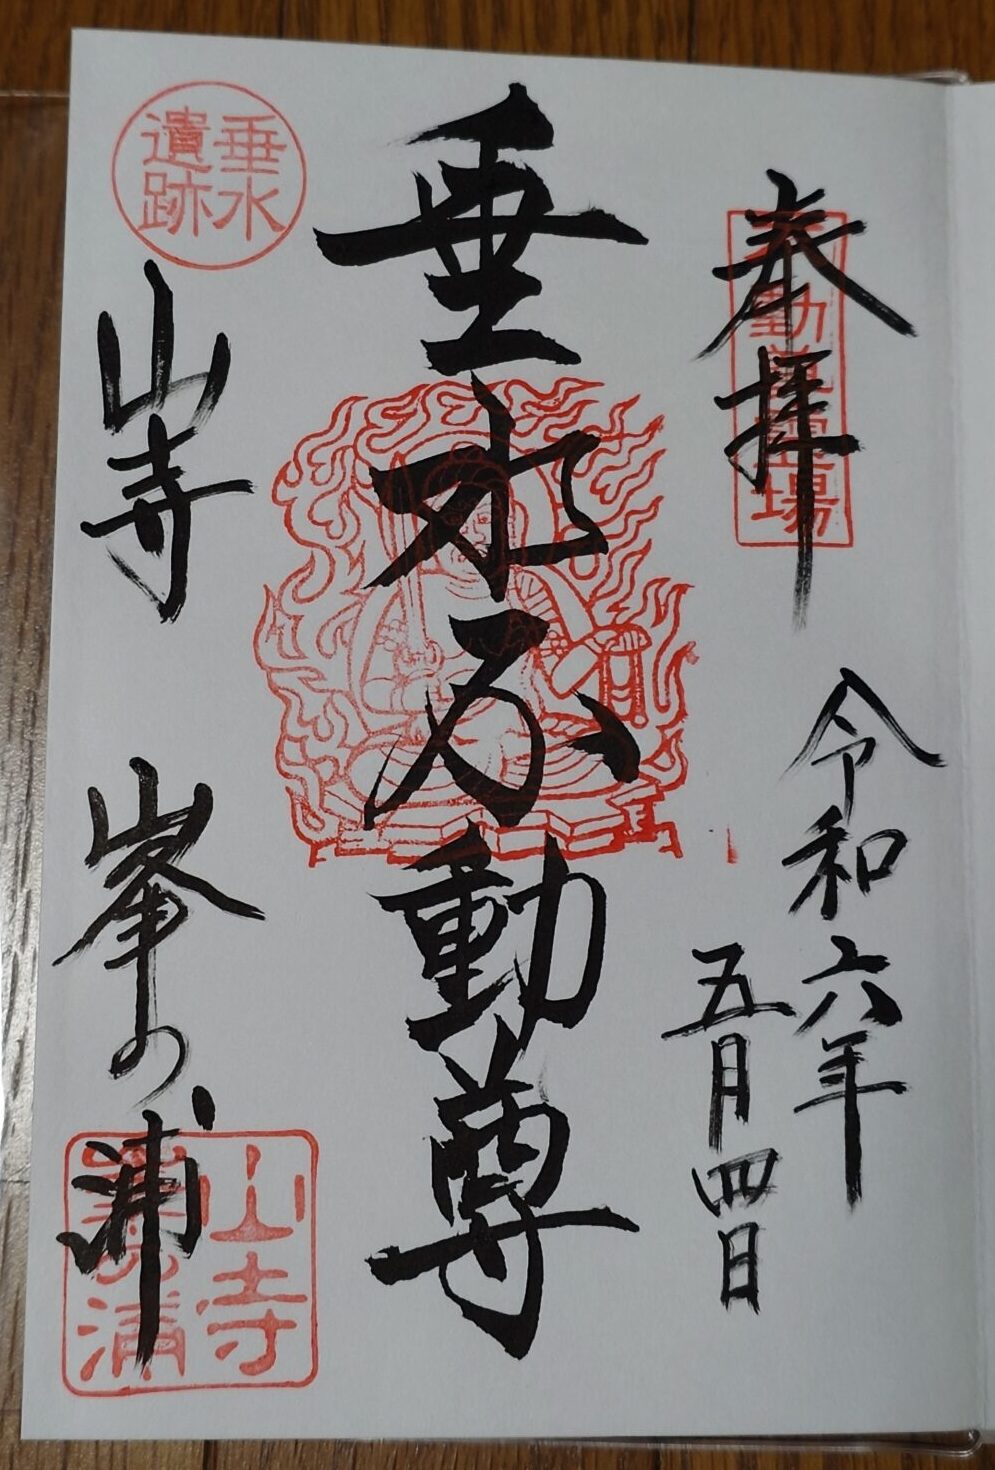 奉拝
令和六年
五月四日
垂水不動尊
垂水
遺跡
山寺 峯の浦
山寺
峯の浦